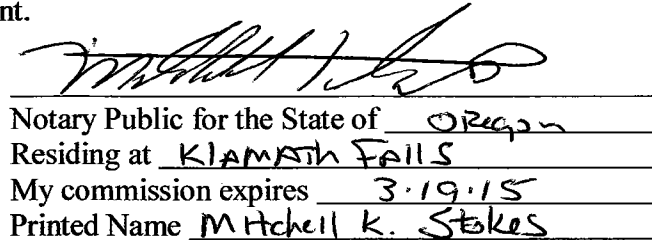 nt.
Notary Public for the State of Oregon
Residing at Klamath Falls
My commission expires 3.19.15
Printed Name Mitchell K. Stokes